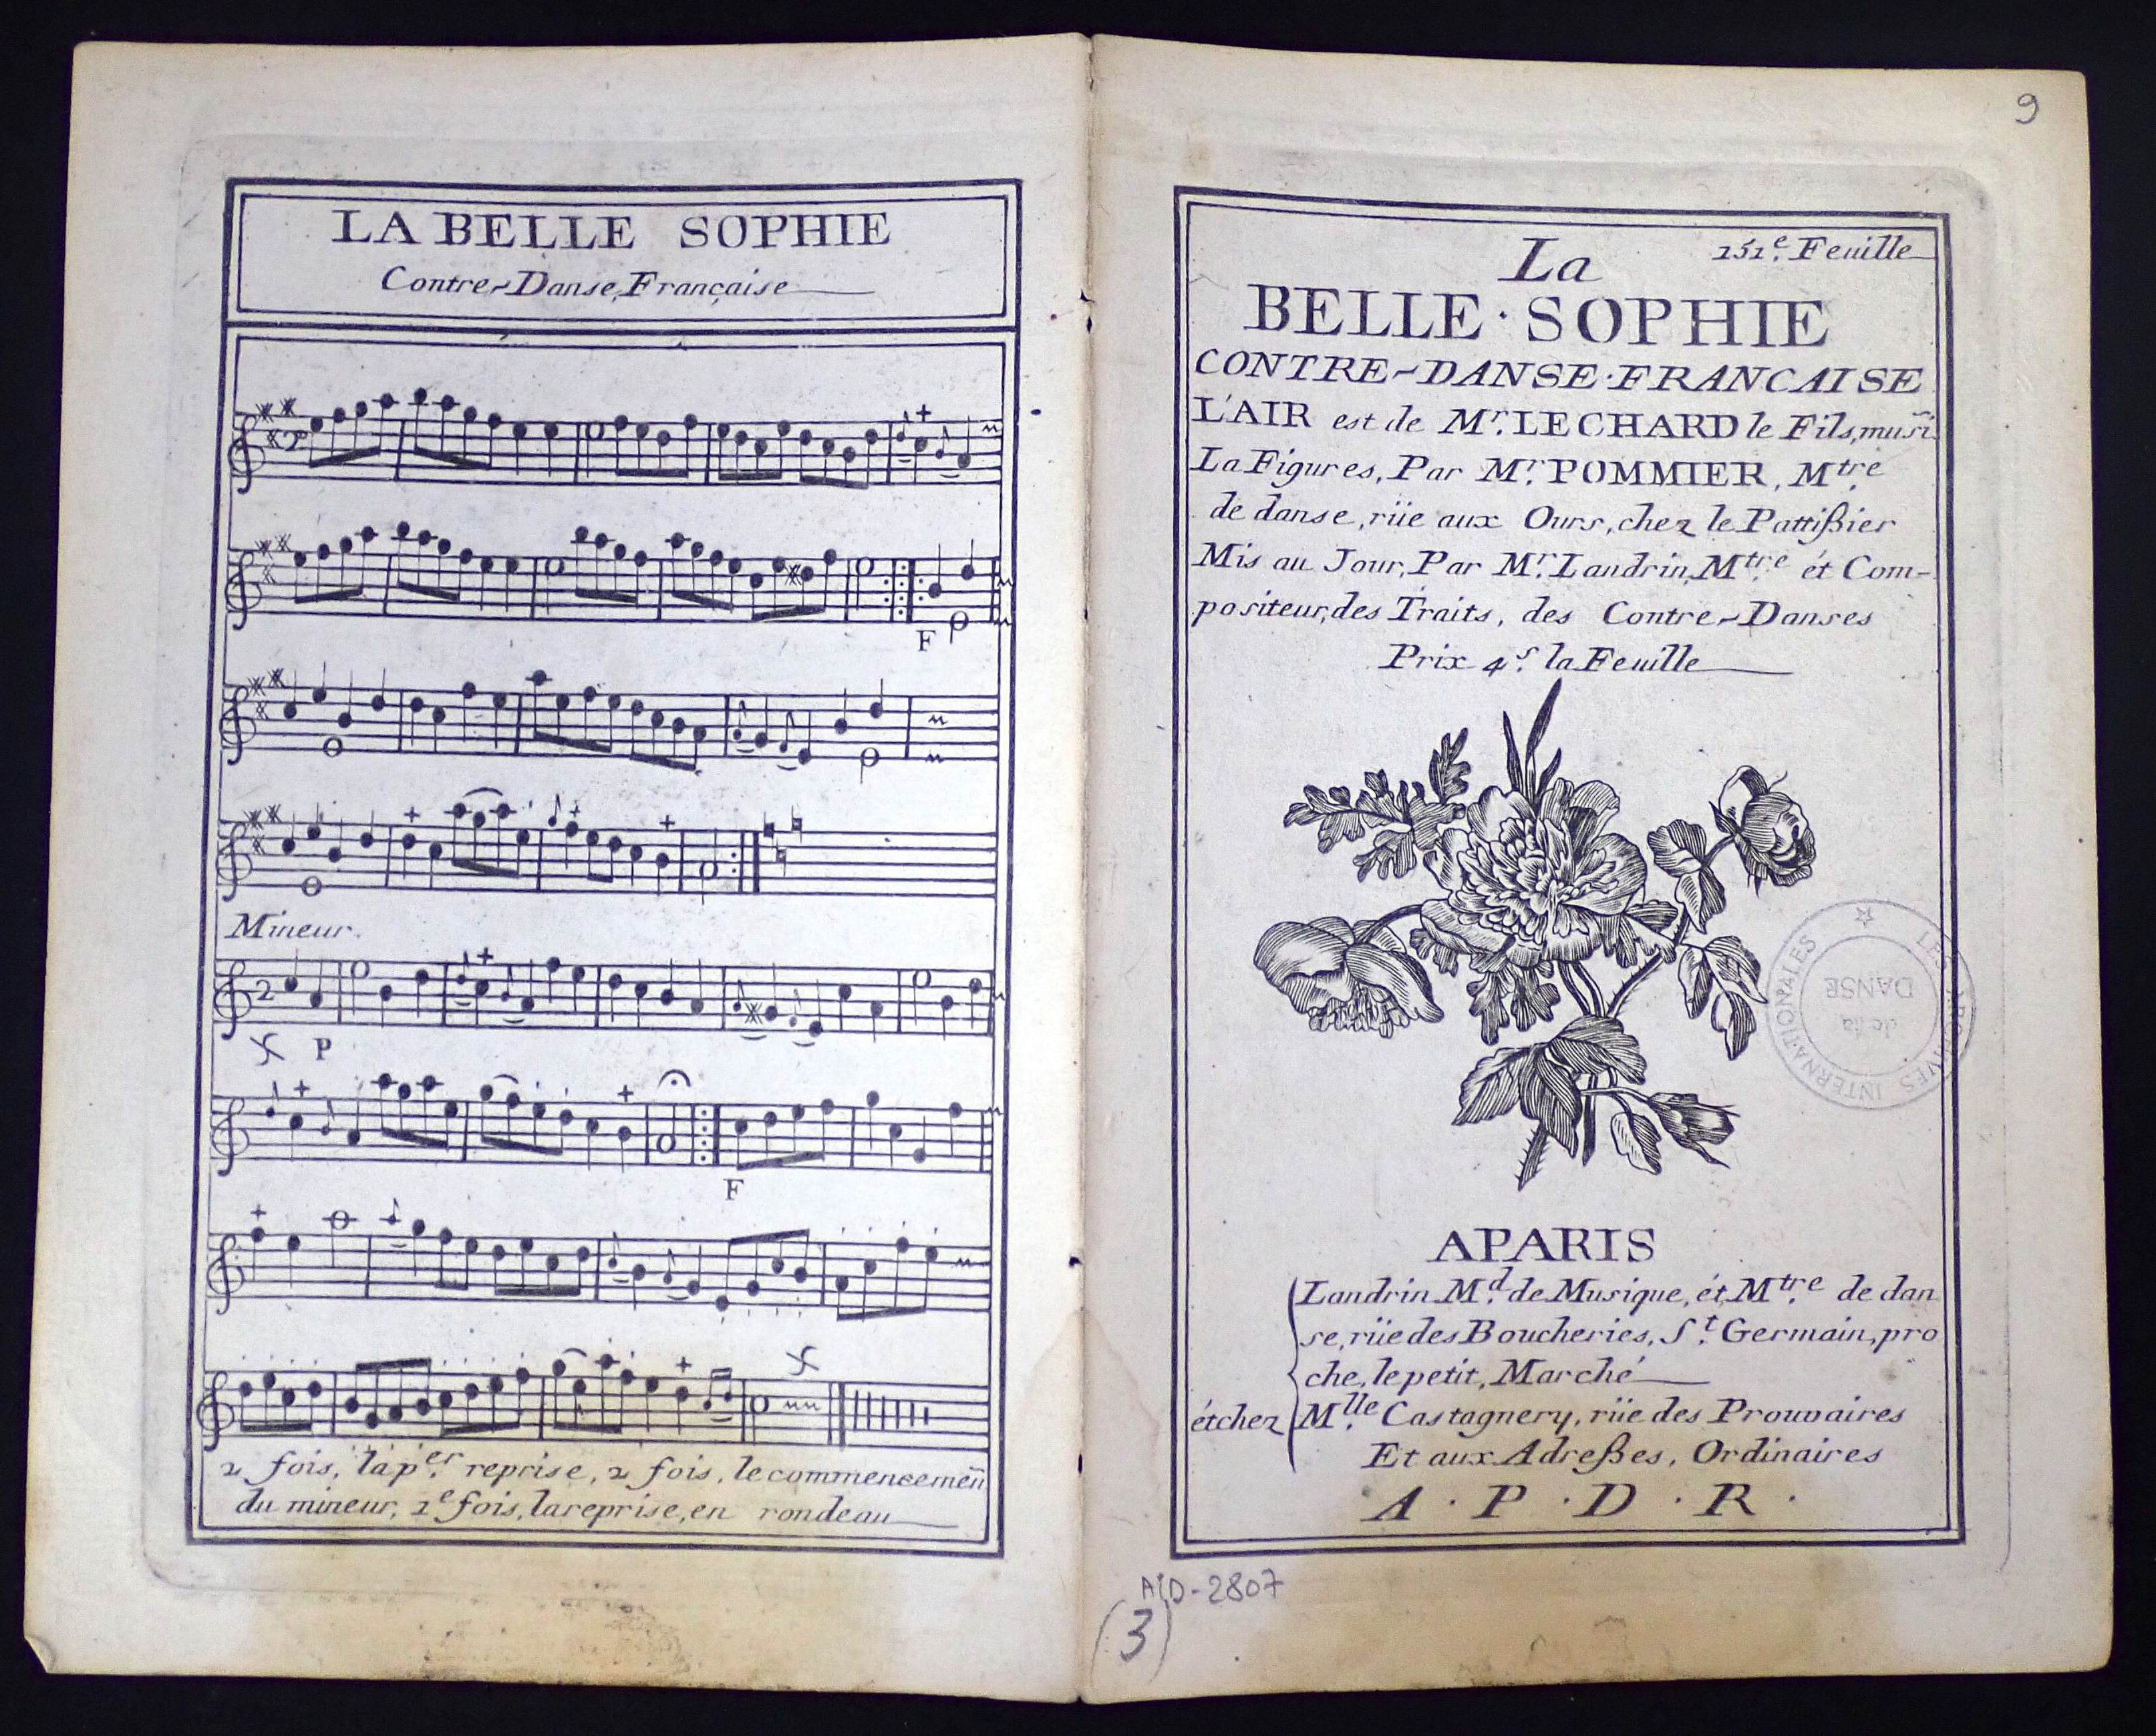 LA BELLE SOPHIE
Contre-Danse, Française
F
Mineur.
2
P
F
2 fois, la p.er reprise, 2 fois, le commencemen̄
du mineur, 1e fois, la reprise, en rondeau
9
151.e Feuille
La
BELLE · SOPHIE
CONTRE-DANSE · FRANCAISE
L'AIR est de Mr. LECHARD le Fils, musi
La Figures, Par Mr. POMMIER, Mtre.
de danse, rüe aux Ours, chez le Pattißier
Mis au Jour, Par Mr. Landrin, Mtre. ét Com-
positeur, des Traits, des Contre-Danses
Prix 4s. la Feuille
LES ARCHIVES INTERNATIONALES
de la
DANSE
APARIS
Landrin Md. de Musique, ét Mtre. de dan
se, rüe des Boucheries, St. Germain, pro
che, le petit, Marché
étchez Mlle. Castagnery, rüe des Prouvaires
Et aux Adreßes, Ordinaires
A · P · D · R ·
AID-2807
(3)